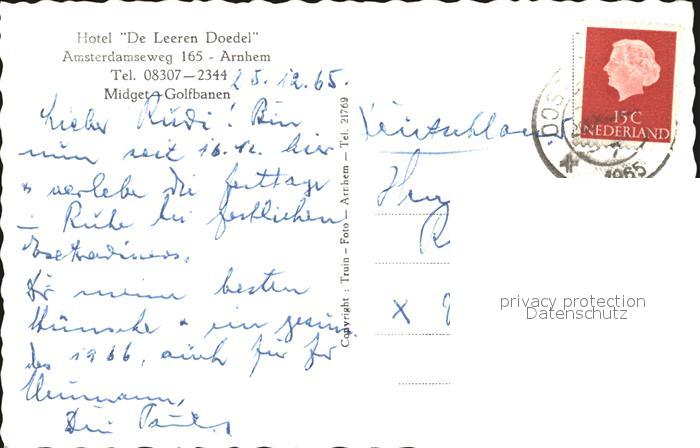 Hotel "De Leeren Doedel"
Amsterdamseweg 165 - Arnhem
Tel. 08307—2344
Midget - Golfbanen
25.12.65.
Lieber Rudi! Bin
nun seit 16.12. hier
+ verlebe die Festtage
in Ruhe bei festlichen
Dir meine besten
Wünsche + ein
1966, auch für
Dein
Copyright : Truin - Foto - Arnhem - Tel. 21769
Deutschland
X
15C
NEDERLAND
1965
privacy protection
Datenschutz